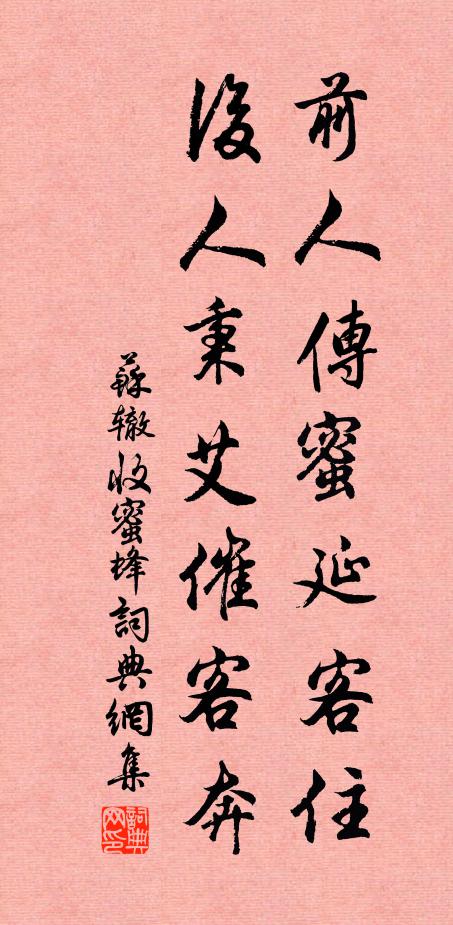 前人傳蜜延客住
後人秉艾催客奔
蘇轍收蜜蜂詞典網集
詞典网印